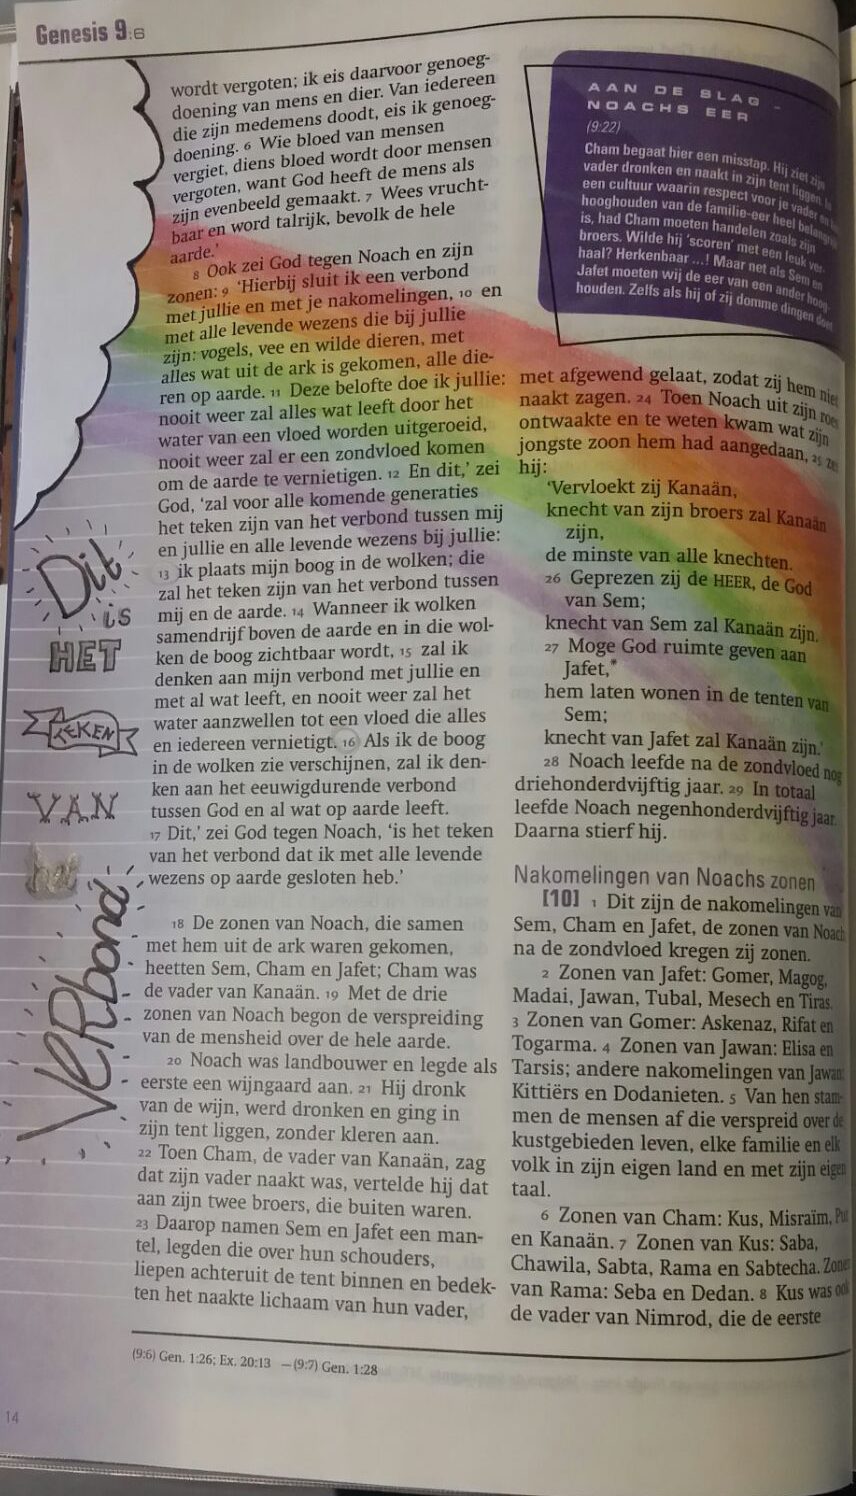 Genesis 9:6
wordt vergoten; ik eis daarvoor genoeg-
doening van mens en dier. Van iedereen
die zijn medemens doodt, eis ik genoeg-
doening. 6 Wie bloed van mensen
vergiet, diens bloed wordt door mensen
vergoten, want God heeft de mens als
zijn evenbeeld gemaakt. 7 Wees vrucht-
baar en word talrijk, bevolk de hele
aarde.’
8 Ook zei God tegen Noach en zijn
zonen: 9 ‘Hierbij sluit ik een verbond
met jullie en met je nakomelingen, 10 en
met alle levende wezens die bij jullie
zijn: vogels, vee en wilde dieren, met
alles wat uit de ark is gekomen, alle die-
ren op aarde. 11 Deze belofte doe ik jullie:
nooit weer zal alles wat leeft door het
water van een vloed worden uitgeroeid,
nooit weer zal er een zondvloed komen
om de aarde te vernietigen. 12 En dit,’ zei
God, ‘zal voor alle komende generaties
het teken zijn van het verbond tussen mij
en jullie en alle levende wezens bij jullie:
13 ik plaats mijn boog in de wolken; die
zal het teken zijn van het verbond tussen
mij en de aarde. 14 Wanneer ik wolken
samendrijf boven de aarde en in die wol-
ken de boog zichtbaar wordt, 15 zal ik
denken aan mijn verbond met jullie en
met al wat leeft, en nooit weer zal het
water aanzwellen tot een vloed die alles
en iedereen vernietigt. 16 Als ik de boog
in de wolken zie verschijnen, zal ik den-
ken aan het eeuwigdurende verbond
tussen God en al wat op aarde leeft.
17 Dit,’ zei God tegen Noach, ‘is het teken
van het verbond dat ik met alle levende
wezens op aarde gesloten heb.’
18 De zonen van Noach, die samen
met hem uit de ark waren gekomen,
heetten Sem, Cham en Jafet; Cham was
de vader van Kanaän. 19 Met de drie
zonen van Noach begon de verspreiding
van de mensheid over de hele aarde.
20 Noach was landbouwer en legde als
eerste een wijngaard aan. 21 Hij dronk
van de wijn, werd dronken en ging in
zijn tent liggen, zonder kleren aan.
22 Toen Cham, de vader van Kanaän, zag
dat zijn vader naakt was, vertelde hij dat
aan zijn twee broers, die buiten waren.
23 Daarop namen Sem en Jafet een man-
tel, legden die over hun schouders,
liepen achteruit de tent binnen en bedek-
ten het naakte lichaam van hun vader,
Dit
is
HET
TEKEN
VAN
het
VERbond
AAN DE SLAG -
NOACHS EER
(9:22)
Cham begaat hier een misstap. Hij ziet zijn
vader dronken en naakt in zijn tent liggen. In
een cultuur waarin respect voor je vader en
hooghouden van de familie-eer heel belangrijk
is, had Cham moeten handelen zoals zijn
broers. Wilde hij ‘scoren’ met een leuk ver-
haal? Herkenbaar ...! Maar net als Sem en
Jafet moeten wij de eer van een ander hoog-
houden. Zelfs als hij of zij domme dingen doet.
met afgewend gelaat, zodat zij hem niet
naakt zagen. 24 Toen Noach uit zijn roes
ontwaakte en te weten kwam wat zijn
jongste zoon hem had aangedaan, 25 zei
hij:
‘Vervloekt zij Kanaän,
knecht van zijn broers zal Kanaän
zijn,
de minste van alle knechten.
26 Geprezen zij de HEER, de God
van Sem;
knecht van Sem zal Kanaän zijn.
27 Moge God ruimte geven aan
Jafet,*
hem laten wonen in de tenten van
Sem;
knecht van Jafet zal Kanaän zijn.’
28 Noach leefde na de zondvloed nog
driehonderdvijftig jaar. 29 In totaal
leefde Noach negenhonderdvijftig jaar.
Daarna stierf hij.
Nakomelingen van Noachs zonen
[10] 1 Dit zijn de nakomelingen van
Sem, Cham en Jafet, de zonen van Noach
na de zondvloed kregen zij zonen.
2 Zonen van Jafet: Gomer, Magog,
Madai, Jawan, Tubal, Mesech en Tiras.
3 Zonen van Gomer: Askenaz, Rifat en
Togarma. 4 Zonen van Jawan: Elisa en
Tarsis; andere nakomelingen van Jawan:
Kittiërs en Dodanieten. 5 Van hen stam-
men de mensen af die verspreid over de
kustgebieden leven, elke familie en elk
volk in zijn eigen land en met zijn eigen
taal.
6 Zonen van Cham: Kus, Misraïm, Put
en Kanaän. 7 Zonen van Kus: Saba,
Chawila, Sabta, Rama en Sabtecha. Zonen
van Rama: Seba en Dedan. 8 Kus was ook
de vader van Nimrod, die de eerste
(9:6) Gen. 1:26; Ex. 20:13 – (9:7) Gen. 1:28
14